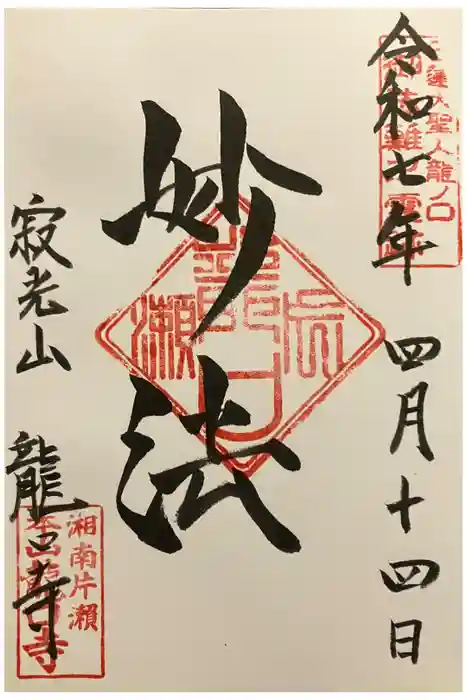 蓮大聖人龍ノ口
令和七年 四月十四日
妙法
龍口
瀬
寂光山 龍口寺
湘南片瀬
本山龍口寺